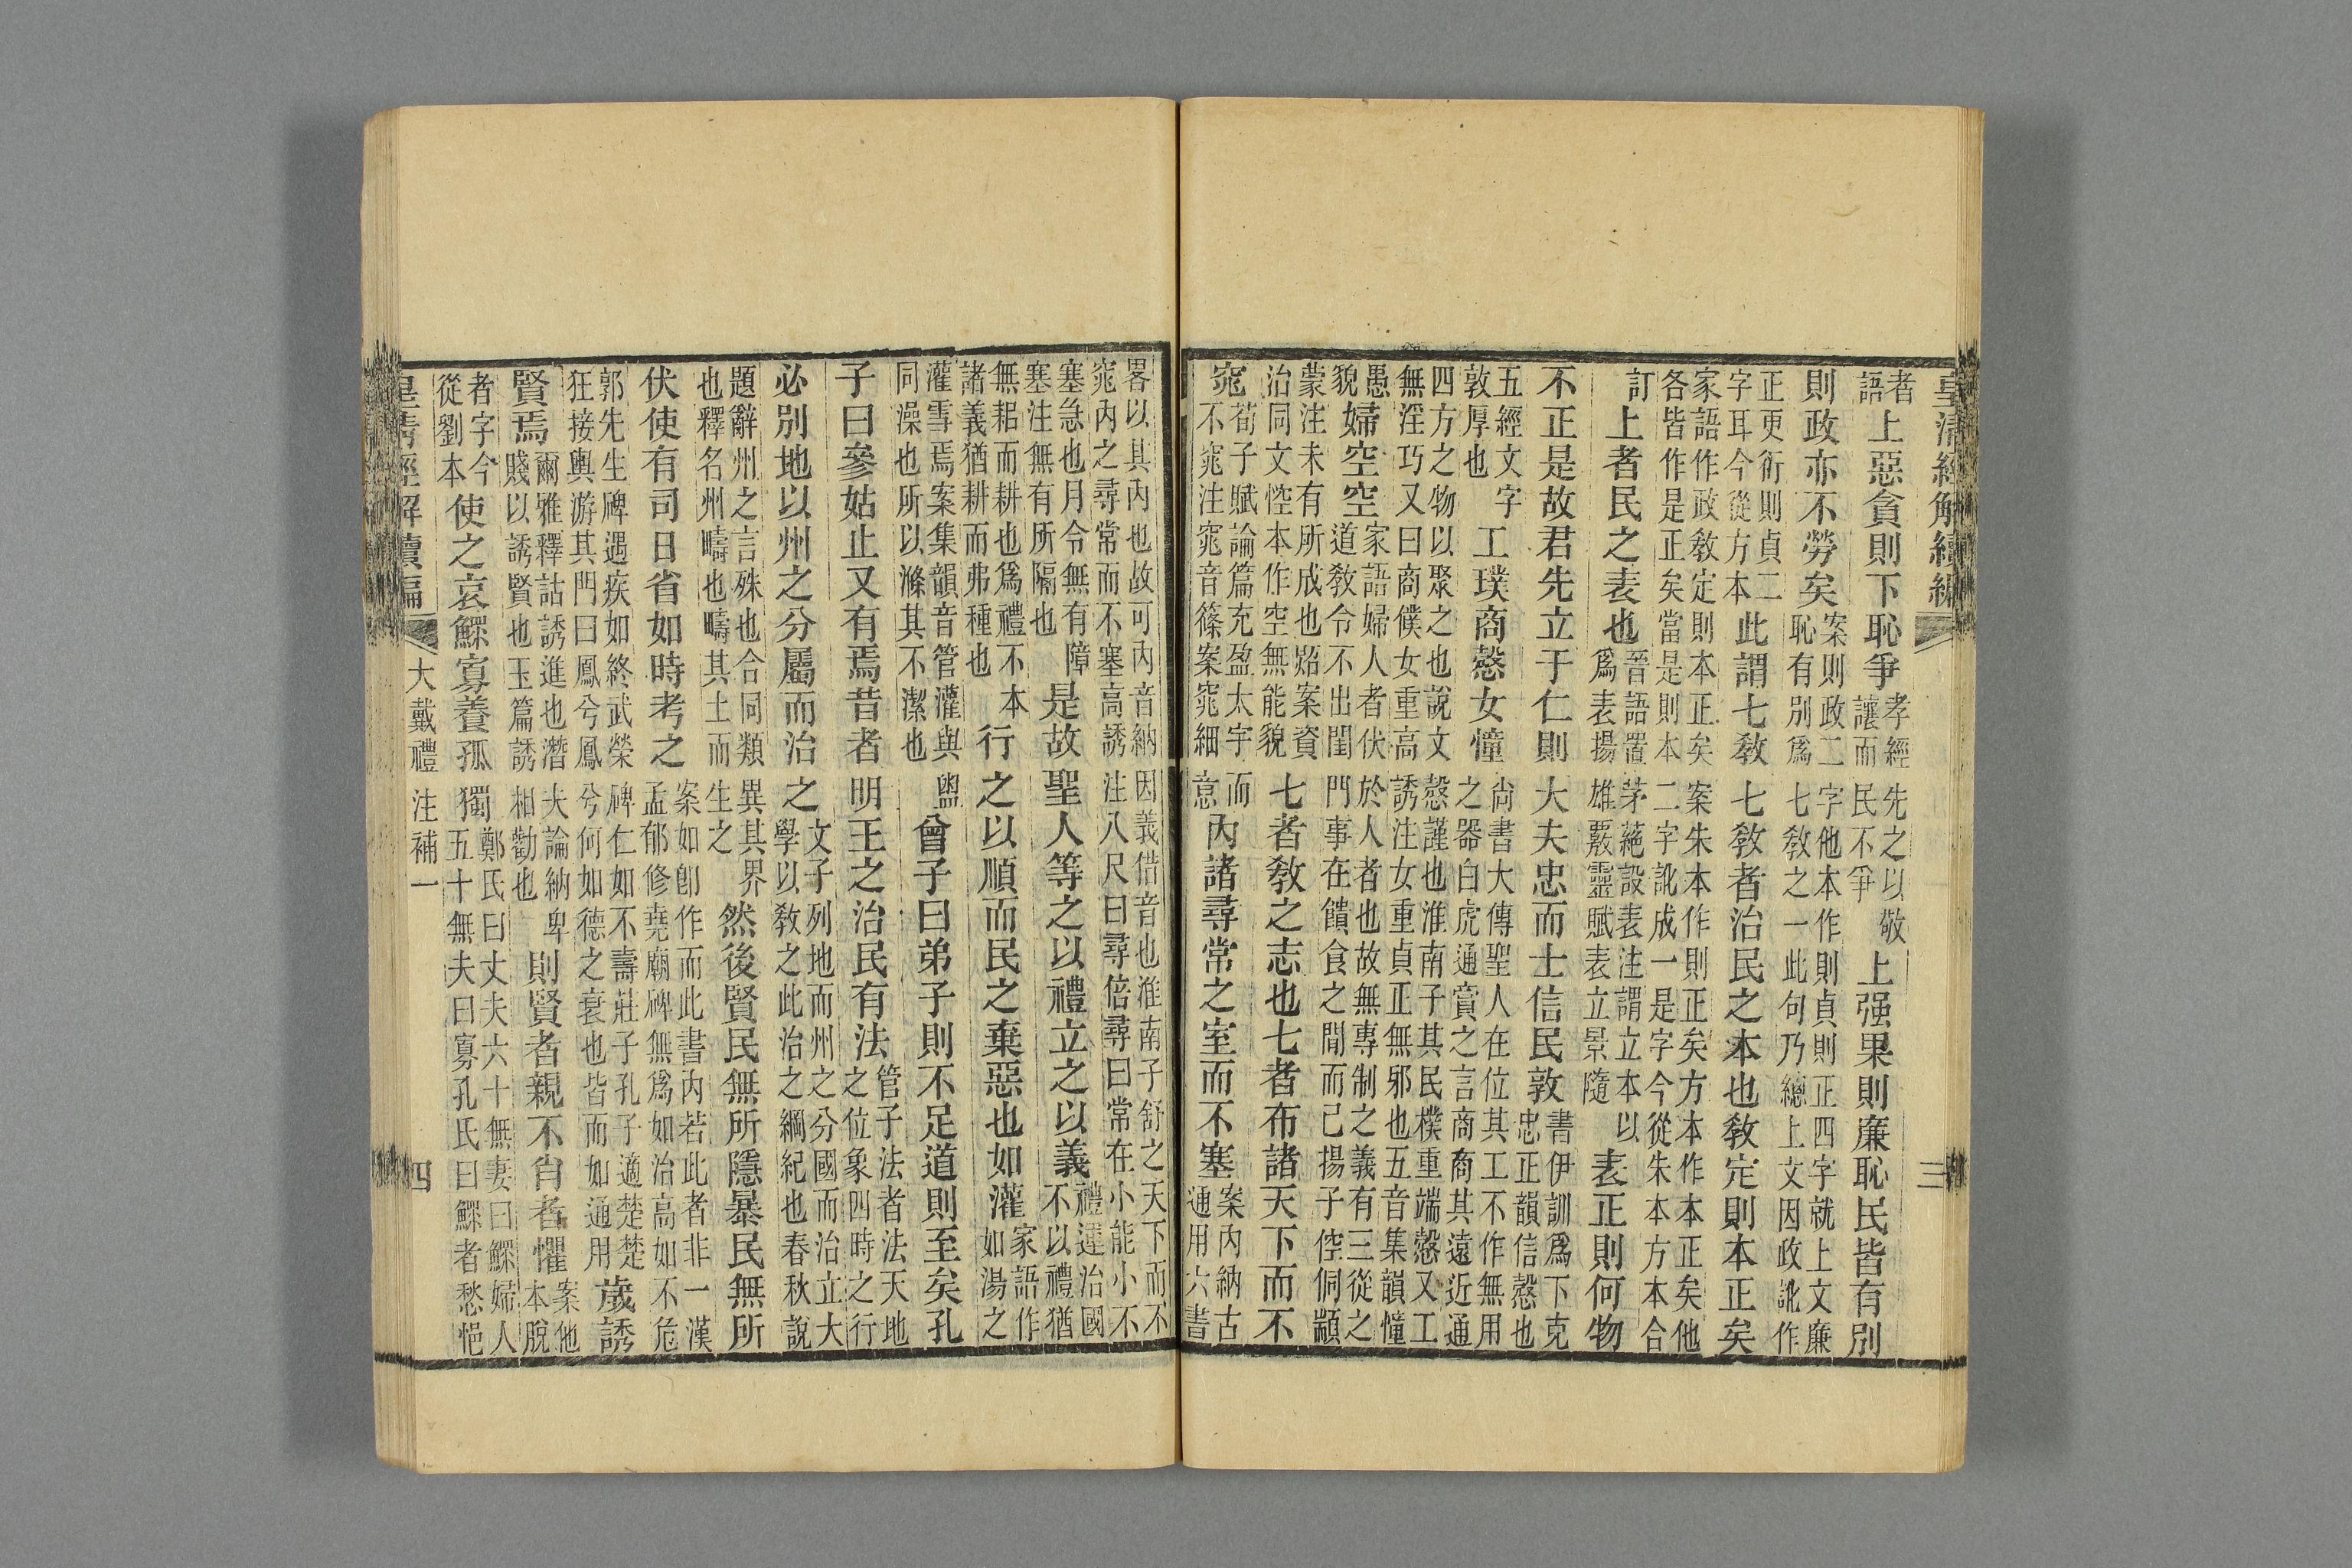 皇清經解續編 三
者語上惡貪則下恥爭孝經先之以敬讓而民不爭上强果則廉恥民皆有別
則政亦不勞矣案則政二字他本作則貞則正四字就上文廉恥有別爲七敎之一此句乃總上文因政訛作
正更衍則貞二字耳今從方本此謂七敎七敎者治民之本也敎定則本正矣
家語作政敎定則本正矣案朱本作則正矣方本作本正矣他各皆作是正矣當是則本二字訛成一是字今從朱本方本合
訂上者民之表也晉語置茅蕝設表注謂立本以爲表揚雄覈靈賦表立景隨表正則何物
不正是故君先立于仁則大夫忠而士信民敦書伊訓爲下克忠正韻信慤也
五經文字敦厚也工璞商慤女憧尙書大傳聖人在位其工不作無用之器白虎通賞之言商商其遠近通
四方之物以聚之也說文慤謹也淮南子其民樸重端慤又工無淫巧又曰商僕女重高誘注女重貞正無邪也五音集韻憧
愚貌婦空空家語婦人者伏於人者也故無專制之義有三從之道敎令不出閨門事在饋食之閒而已揚子倥侗顓
蒙注未有所成也案資治同文悾本作空無能貌七者敎之志也七者布諸天下而不
窕荀子賦論篇充盈太宇而不窕注窕音篠案窕細意內諸尋常之室而不塞案內納古通用六書
畧以其內也故可內音納因義借音也淮南子舒之天下而不窕內之尋常而不塞高誘注八尺曰尋倍尋曰常在小能小不
塞急也月令無有障塞注無有所隔也是故聖人等之以禮立之以義禮運治國不以禮猶
無耜而耕也爲禮不本諸義猶耕而弗種也行之以順而民之棄惡也如灌家語作如湯之
灌雪焉案集韻音管灌與盥同澡也所以滌其不潔也曾子曰弟子則不足道則至矣孔
子曰參姑止又有焉昔者明王之治民有法管子法者法天地之位象四時之行
必別地以州之分屬而治之文子列地而州之分國而治立大學以敎之此治之綱紀也春秋說
題辭州之言殊也合同類異其界也釋名州疇也疇其土而生之然後賢民無所隱暴民無所
伏使有司日省如時考之案如卽作而此書內若此者非一漢孟郁修堯廟碑無爲如治高如不危
郭先生碑遇疾如終武榮碑仁如不壽莊子孔子適楚楚狂接輿游其門曰鳳兮鳳兮何如德之衰也皆而如通用歲誘
賢焉爾雅釋詁誘進也潛夫論納卑賤以誘賢也玉篇誘相勸也則賢者親不肖者懼案他本脫
者字今從劉本使之哀鰥寡養孤獨鄭氏曰丈夫六十無妻曰鰥婦人五十無夫曰寡孔氏曰鰥者愁悒
皇清經解續編 大戴禮注補一 四